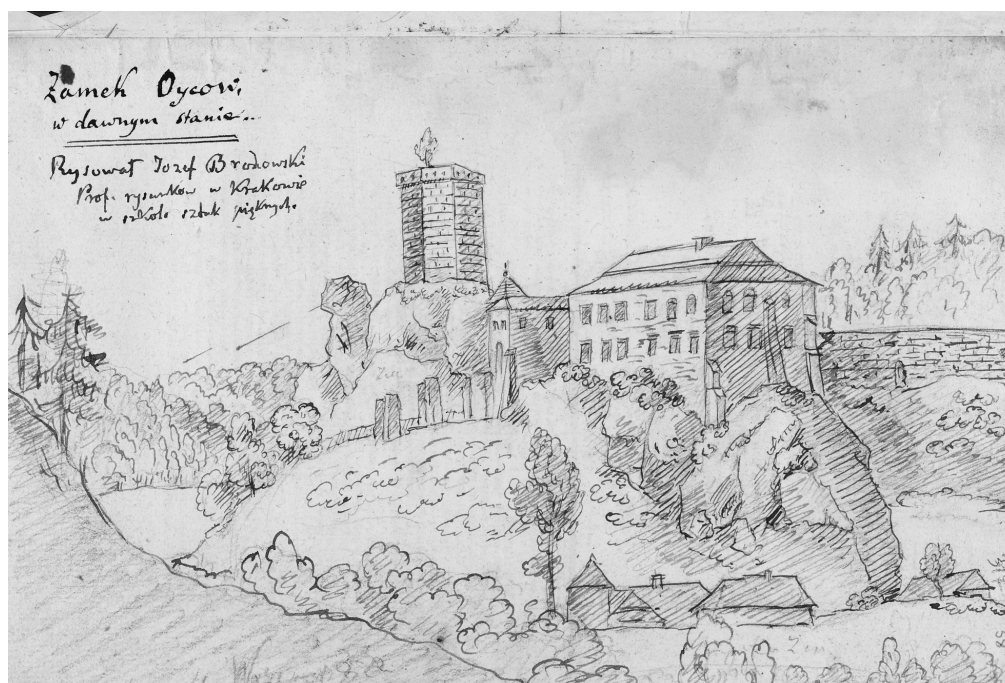 Zamek Oycow,
w dawnym stanie..
Rysował Jozef Brodowski
Prof. rysunków w Krakowie
w szkole sztuk pięknych.